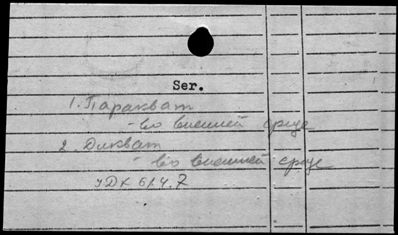 Ser.
1. Паракват
- во внешней среде
2. Дикват
- во внешней среде
УДК 614.7